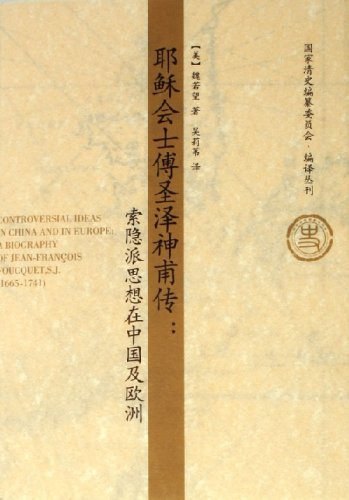 国家清史编纂委员会·编译丛刊
【美】魏若望 著 吴莉苇 译
耶稣会士傅圣泽神甫传：
索隐派思想在中国及欧洲
CONTROVERSIAL IDEAS
IN CHINA AND IN EUROPE:
A BIOGRAPHY
OF JEAN-FRANÇOIS
FOUCQUET,S.J.
(1665-1741)